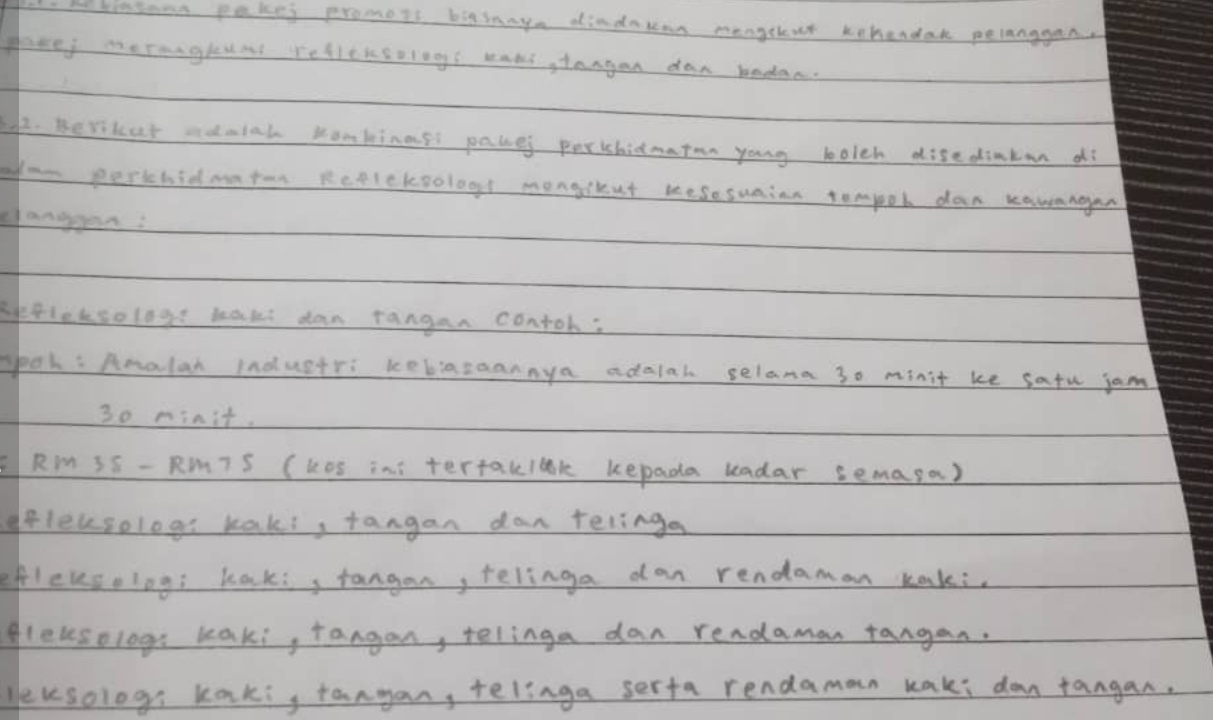 Kebiasaan pakej promosi biasanya diadakan mengikut kehendak pelanggan.
pakej merangkumi refleksologi kaki, tangan dan badan.
2. Berikut adalah kombinasi pakej perkhidmatan yang boleh disediakan di
alam perkhidmatan Refleksologi mengikut kesesuaian tempoh dan kawangan
elanggan :
Refleksologi kaki dan tangan Contoh :
mpoh : Amalan industri kebiasaannya adalah selama 30 minit ke satu jam
30 minit.
: RM 35 - RM75 (kos ini tertakluk kepada kadar semasa)
efleksologi kaki, tangan dan telinga
efleksologi kaki, tangan, telinga dan rendaman kaki.
fleksologi kaki, tangan, telinga dan rendaman tangan.
leksologi kaki, tangan, telinga serta rendaman kaki dan tangan.